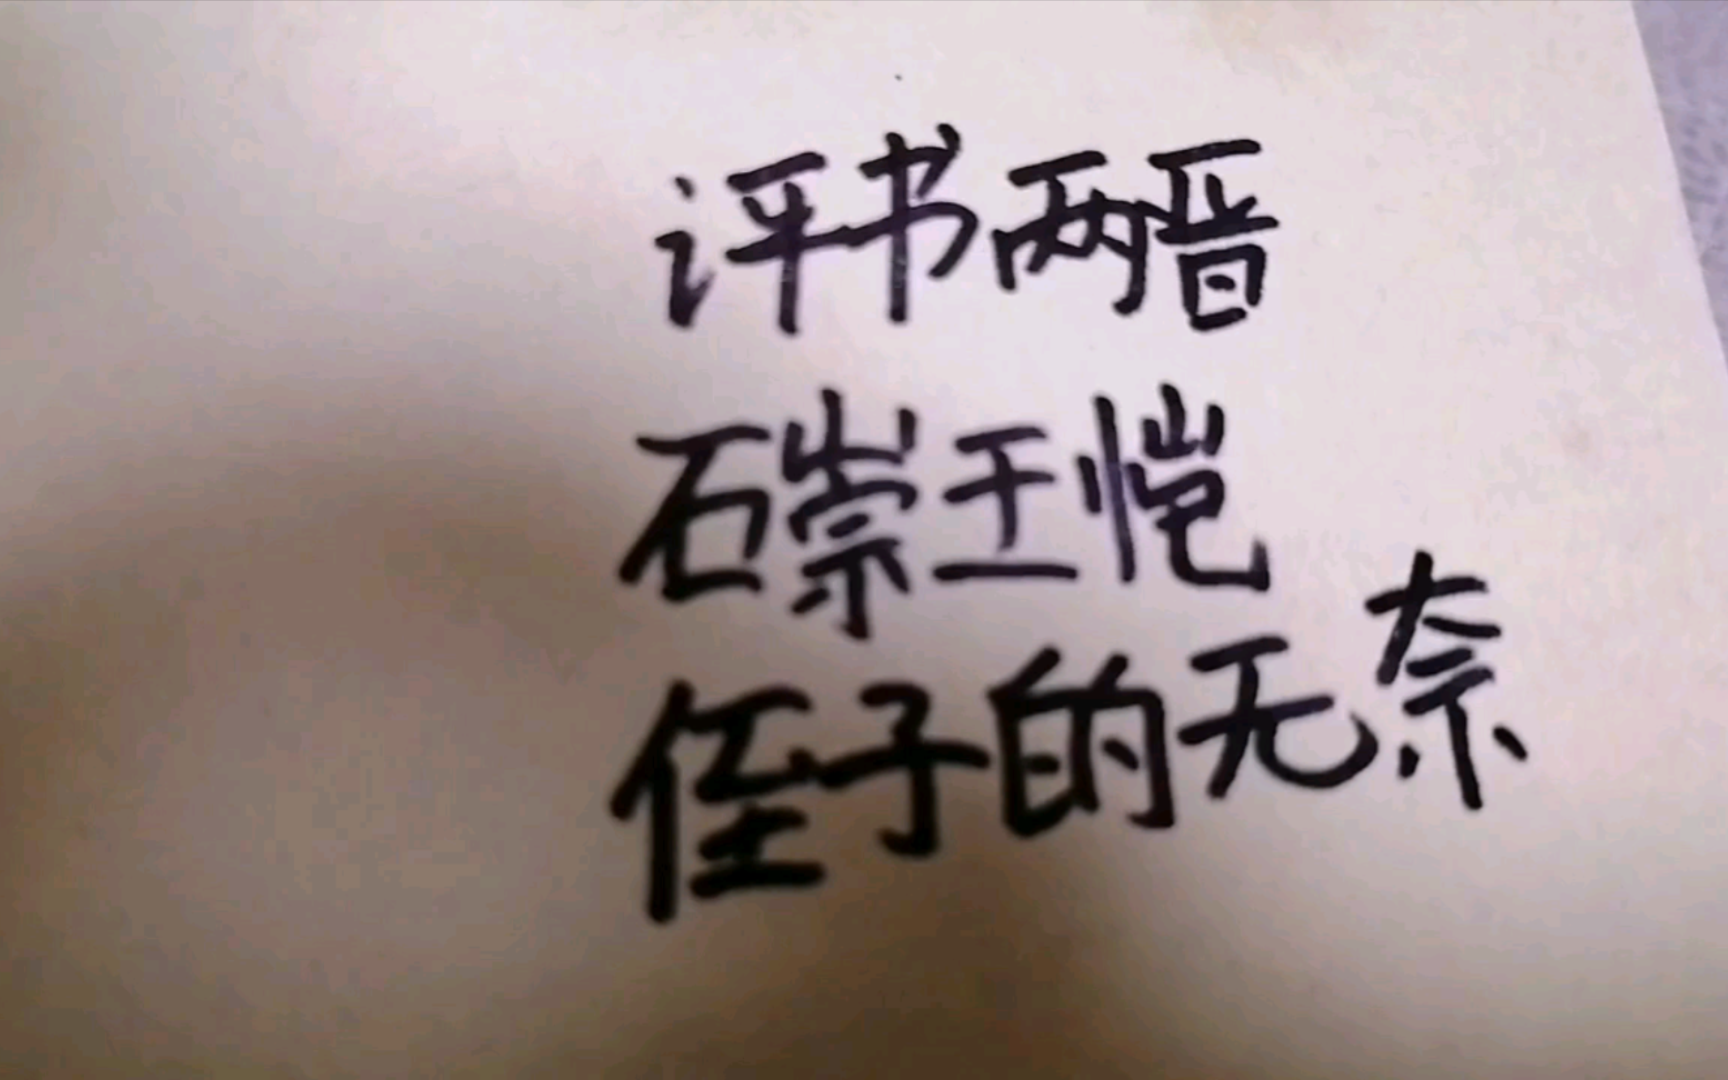 评书两晋
石崇王恺
侄子的无奈